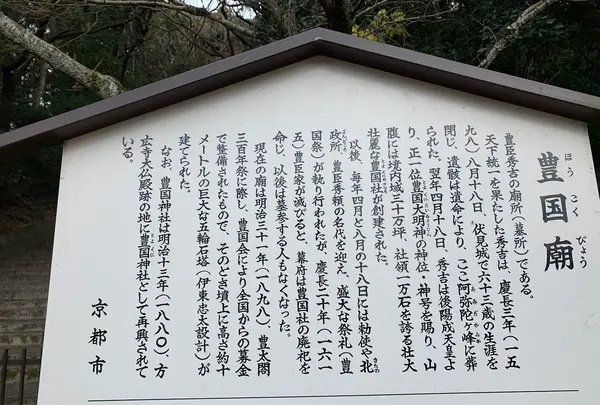 豊国廟
ほうこくびょう
豊臣秀吉の廟所（墓所）である。
天下統一を果たした秀吉は、慶長三年（一五
九八）八月十八日、伏見城で六十三歳の生涯を
閉じ、遺骸は遺命により、ここ阿弥陀ヶ峰に葬
られた。翌年四月十八日、秀吉は後陽成天皇よ
り、正一位豊国大明神の神位・神号を賜り、山
腹には境内域三十万坪、社領一万石を誇る壮大
壮麗な豊国社が創建された。
以後、毎年四月と八月の十八日には勅使や北
政所、豊臣秀頼の名代を迎え、盛大な祭礼（豊
国祭）が執り行われたが、慶長二十年（一六一
五）豊臣家が滅びると、幕府は豊国社の廃祀を
命じ、以後は墓参する人もなくなった。
現在の廟は明治三十一年（一八九八）、豊太閤
三百年祭に際し、豊国会により全国からの募金
で整備されたもので、そのとき墳上に高さ約十
メートルの巨大な五輪石塔（伊東忠太設計）が
建てられた。
なお、豊国神社は明治十三年（一八八〇）、方
広寺大仏殿跡の地に豊国神社として再興されて
いる。
京都市